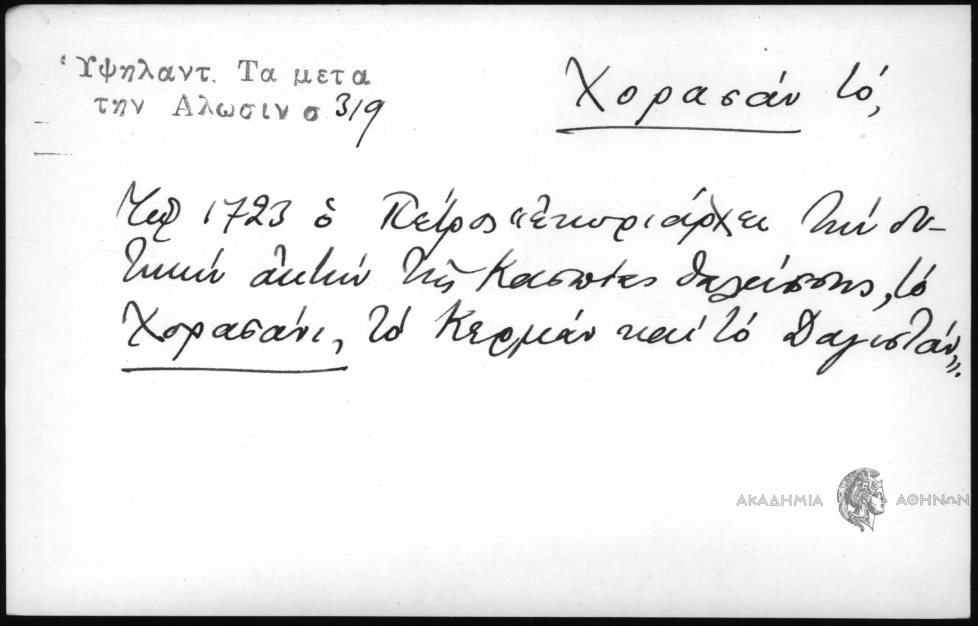 Ὑψηλαντ. Τα μετα
την Αλωσιν σ 319
Χορασάν τό,
1723 ὁ Πέτρος "ἐκυριάρχει τήν δυ-
τικήν ἀκτήν τῆς Κασπίας θαλάσσης, τό
Χορασάνι, τό Κερμάν καί τό Δαγιστάν".
ΑΚΑΔΗΜΙΑ ΑΘΗΝΩΝ